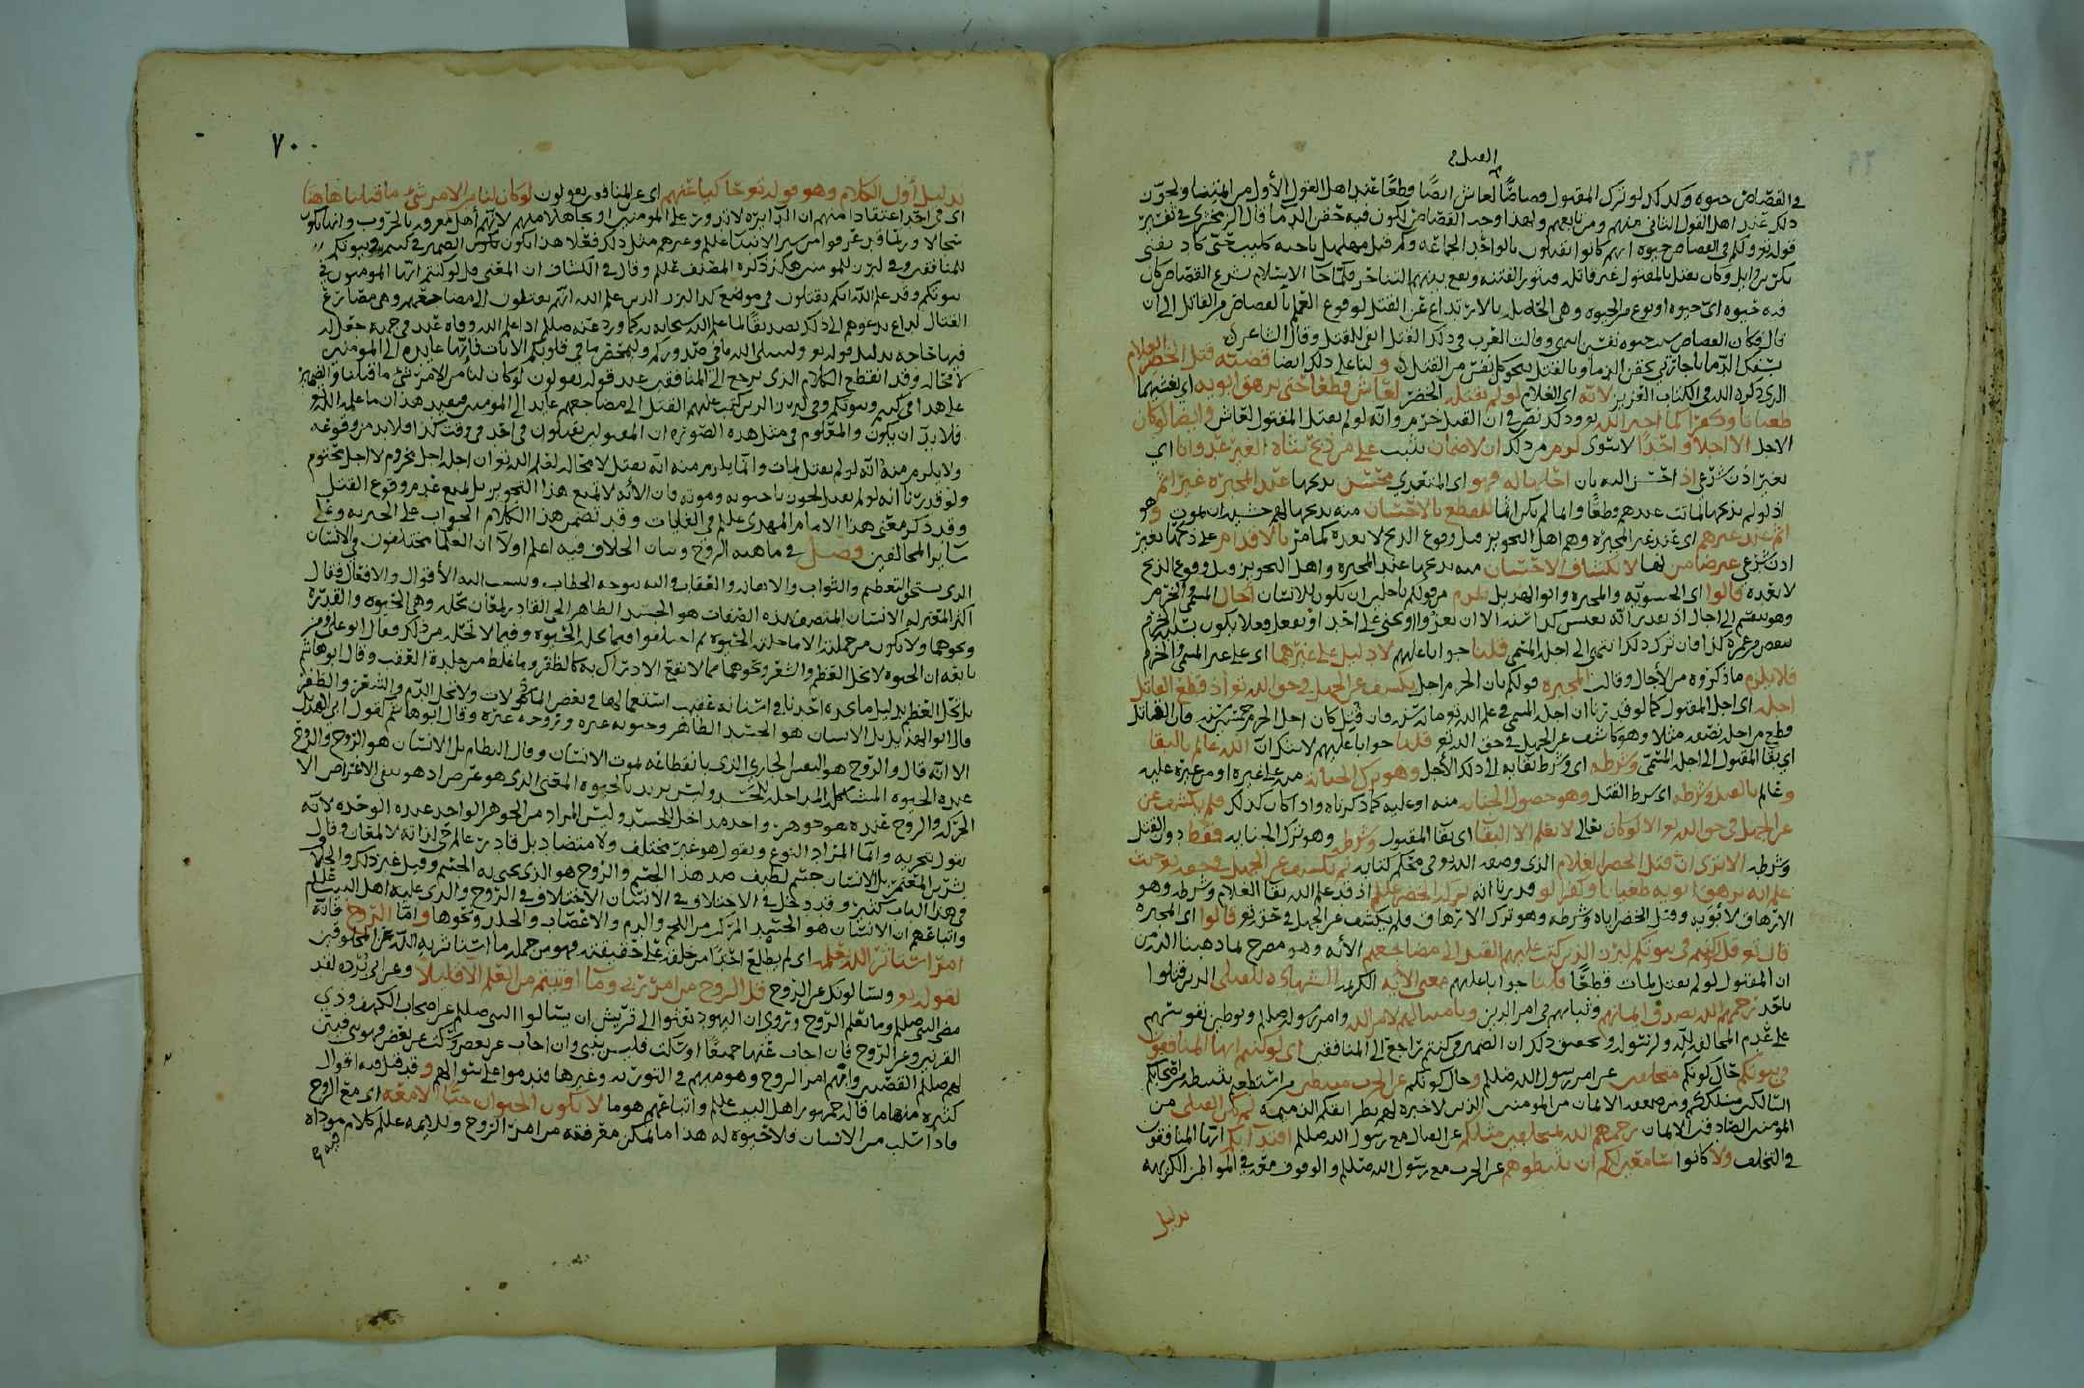 العسل
في القصاص حيوة وكذلك لو ترك المقتول قصاصًا لعاش ايضًا قطعًا عند اهل القول الأول من
ذلك عند اهل القول الثاني منهم ومن تابعهم ولهذا وجب القصاص ليكون فيه حقن الدما قال الزمخشري في تفسير
قوله تع ولكم في القصاص حيوة انهم كانوا يقتلون بالواحد الجماعه وكم قتل مهلهل باخيه كليب حتى كاد يفني
بكر بن وايل وكان يقتل بالمقتول غير قاتله فتثور الفتنه ويقع بينهم التناحر فلما جا الاسلام بشرع القصاص كان
فيه حيوه اي حيوه او نوع من الحيوه وهي الحاصله بالارتداع عن القتل لوقوع العلم بالقصاص من القاتل الى ان
قال فكان القصاص سبب حيوه نفسين انتهى وقالت العرب في ذلك القتل انفى للقتل وقال الشاعر
بسفك الدما يا جارتي تحقن الدما وبالقتل تنجو كل نفس من القتل ولنا على ذلك ايضا قصة قتل الخضر الغلام
الذي ذكره الله في الكتاب العزيز لانه اي الغلام لو لم يقتله الخضر لعاش قطعا حتى يرهق ابويه اي يغشيهما
طغيانا وكفرا كما اخبر الله تع وذلك نص في ان القتل خرم وانه لو لم يقتل المقتول لعاش وايضا لو كان
الاجل الا اجلا واحدًا لا سوى لزم من ذلك ان لا ضمان يثبت على من ذبح شاة الغير عدوانا اي
بغير اذن شرعي اذ احسن اليه بان احلها له فهو اي المتعدي محسن بذبحها عند المجبره غير اثم
اذ لو لم يذبحها لماتت عندهم قطعا وانما لم يكن اثما للقطع بالاحسان منه بذبحها لهم خشية ان تموت وهو
اثم عند غيرهم اي عند غير المجبرة وهم اهل التجويز قبل وقوع الذبح لا بعده كما مر بالاقدام على ذبحها بغير
اذن شرعي غير ضامن لها لانكشاف الاحسان منه بذبحها عند المجبره واهل التجويز قبل وقوع الذبح
لا بعده قالوا اي الحشويه والمجبره وابو الهذيل يلزم من قولكم باجلين ان يكون للانسان اجال المسمى والخرم
قلنا جوابا عليهم لا دليل على غيرهما اي على غير المسمى والخرم
فلا يلزم ما ذكروه من الأجال وقالت المجبره قولكم بان الخرم اجل يكشف عن الجهل في حق الله تع اذ قطع القاتل
اجله اي اجل المقتول كما لو قدرنا ان اجله المسمى في علم الله تع مائة سنة فان قيل كان اجل الخرم خمسين سنه فان القاتل
قطع من اجله نصفه مثلا وهو كاشف عن الجهل في حق الله تع قلنا جوابا عليهم لانه كان الله عالم بالبقا
اي بقا المقتول الى اجله المسمى وشرطه اي وشرط بقايه الى ذلك الأجل وهو ترك الجنايه منه على غيره او من غيره عليه
وعالم بالقتل وشرطه اي شرط القتل وهو حصول الجنايه منه او عليه كما ذكرناه واذا كان كذلك فلم يكشف عن
عن الجهل في حق الله تع الا لو كان تعالى لا يعلم الا البقا اي بقا المقتول وشرطه وهو ترك الجنايه فقط دون القتل
وشرطه الا ترى ان قتل الخضر الغلام الذي وصفه الله تع في محكم كتابه لم يكشف عن الجهل في حقه تع حيث
علم انه يرهق ابويه طغيانا وكفرا لو قدرنا انه تركه الخضر عللم اذ قد علم الله بقا الغلام وشرطه وهو
الارهاق لابويه وقتل الخضر اياه وشرطه وهو ترك الارهاق فلم يكشف عن الجهل في حقه تع قالوا اي المجبره
قال تع قل لو كنتم في بيوتكم لبرز الذين كتب عليهم القتل الى مضاجعهم الأيه وهو مصرح لما ذهبنا اليه من
ان المقتول لو لم يقتل لمات قطعًا قلنا جوابا عليهم معنى الأيه الكريمه الشهاده للقتلى الذين قتلوا
باحد رحمهم الله بصدق ايمانهم وثباتهم في امر الدين وبامتثالهم لامر الله وامر رسوله صللم وتوطين نفوسهم
على عدم المخالفه لله ولرسوله وتحقيق ذلك ان الضمير في كنتم راجع الى المنافقين اي لو كنتم ايها المنافقون
في بيوتكم حال كونكم متخلفين عن امر رسول الله صللم وحال كونكم عن الحرب مثبطين من استطعتم تثبيطه من اصحابكم
السالكين مسلككم ومن ضعفه الايمان من المؤمنين الذين لا خبره لهم بطرايقكم الذميمه لم يكن القتلى من
المؤمنين الصادقين الايمان رحمهم الله بمتخلفين مثلكم عن القتال مع رسول الله صللم اقتدآ بكم ايها المنافقون
في التخلف ولا كانوا سامعين لكم ان تثبطوهم عن الحرب مع رسول الله صللم والوقوف معه في المواطن الكريهه
بدليل
٧٠
بدليل أول الكلام وهو قوله تع حاكيا عنهم اي عن المنافقين يقولون لو كان لنا من الامر شيء ما قتلنا هاهنا
اي في احد اعتقادا منهم ان الدآيرة لا تدور على المومنين او تجاهلا منهم لانهم أهل معرفه بالحروب وانها تكون
سجالا وربما قد عرفوا من سير الانبيا عللم وغيرهم مثل ذلك فعلا هذا يكون الضمير في كنتم وبيوتكم
للمنافقين وفي لبرز للمومنين هكذا ذكره المصنف عللم وقال في الكشاف ان المعنى قل لو كنتم ايها المومنون في
بيوتكم وقد علم الله انكم تقتلون في موضع كذا لبرز الذين علم الله انهم يقتلون الى مضاجعهم وهي مصارع
القتال لداع يدعوهم الى ذلك تصديقًا لما علم الله سبحانه كما ورد عنه صللم اذا علم الله وفاه عبد في جهه جعل له
فيها حاجه بدليل قوله تع وليبتلي الله ما في صدوركم وليمحص ما في قلوبكم الايات فانها عايده الى المؤمنين
لا محاله وقد انقطع الكلام الذي يرجع الى المنافقين عند قوله يقولون لو كان لنا من الامر شيء ما قتلنا والضماير
على هذا في كنتم وبيوتكم وفي لبرز الذين كتب عليهم القتل الى مضاجعهم عايد الى المومنين ويفيد هذا ان ما علمه الله تع
فلا بد ان يكون والمعلوم في مثل هذه الصوره ان المقتولين يقتلون في احد في وقت كذا فلا بد من وقوعه
ولا يلزم منه انه لو لم يقتل لمات وانما يلزم منه انه يقتل لا محاله لعلم الله تع ان اجله اجل مخروم لا اجل محتوم
ولو قدرنا انه لو لم يقتل لجوزنا حيوته وموته فان الأيه لا تمنع هذا التجويز بل تمنع عدم وقوع القتل
وقد ذكر معنى هذا الامام المهدي عللم في الغايات وقد تضمن هذا الكلام الجواب على المجبره وعلى
ساير المخالفين فصل في ماهيه الروح وبيان الخلاف فيه اعلم اولا ان العلما مختلفون في الانسان
الذي يستحق التعظيم والثواب والاهانه والعقاب واليه يتوجه الخطاب وينسب اليه الأقوال والافعال فقال
اكثر المعتزله الانسان المتصف بهذه الصفات هو الجسد الظاهر الحي القادر لمعان تحله وهي الحيوه والقدرة
ونحوهما ولا يكون من جملته الا ما حلته الحيوه ثم اختلفوا فيما تحله الحيوه وفيما لا تحله من ذلك فقال ابو علي ومن
تابعه ان الحيوه لا تحل العظم والشعر ونحوهما مما لا يقع الادراك به كالظفر وما غلظ من جلدة العقب وقال ابو هاشم
بل تحل العظم بدليل ما يجده احدنا في اسنانه عقيب استعمالها في بعض الماكولات ولا تحل الدم والشعر والظفر
قال ابو الهذيل بل الانسان هو الجسد الظاهر وحيوته غيره وروحه غيره وقال ابو هاشم كقول ابي الهذيل
الا انه قال والروح هو النفس الجاري الذي بانقطاعه يموت الانسان وقال النظام بل الانسان هو الروح والروح
عنده الحيوه المداخله للجسد وليس يريد بالحيوه المعنى الذي هو عرض اذ هو ينفي الاعراض الا
الحركه والروح عنده هو جوهر واحد مداخل للجسد وليس المراد من الجوهر الواحد عنده الوحده لانه
يقول بتجزيه وانما المراد النوع ويقول هو غير مختلف ولا متضاد بل قادر عالم حي لذاته لا لمعان وقال
بشر بن المعتمر بل الانسان جسم لطيف ضد هذا الجسم والروح هو الذي يحيى به الجسم وقيل غير ذلك والخلاف
في هذا الباب كثير وقد دخل في الاختلاف في الانسان الاختلاف في الروح والذي عليه اهل البيت عللم
واتباعهم ان الانسان هو الجسد المركب من اللحم والدم والاعصاب والجلد ونحوها وامّا الروح فانه
امر استاثر الله بعلمه اي لم يطلع احدًا من خلقه على حقيقته فهو من جمله ما استاثر به الله عن المخلوقين
لقوله تع ويسالونك عن الروح قل الروح من امر ربي وما أوتيتم من العلم الا قليلا وعن ابن بريده لقد
مضى النبي صللم وما يعلم الروح وتروى ان اليهود بعثوا الى قريش ان يسالوا النبي صللم عن اصحاب الكهف وذي
القرنين وعن الروح فان اجاب عنها جميعًا او سكت فليس بنبي وان اجاب عن بعض وسكت عن بعض فهو نبي فبين
لهم صللم القصتين وابهم امر الروح وهو مبهم في التوريه وغيرها فندموا على سوالهم وقد قيل فيه اقوال
كثيره منها ما قاله جمهور اهل البيت عللم واتباعهم هو ما لا يكون الحيوان حيًّا الا معه اي مع الروح
فاذا سلب من الانسان فلا حيوه له هذا ما يمكن معرفته من امر الروح وللايمه عللم كلام موداه